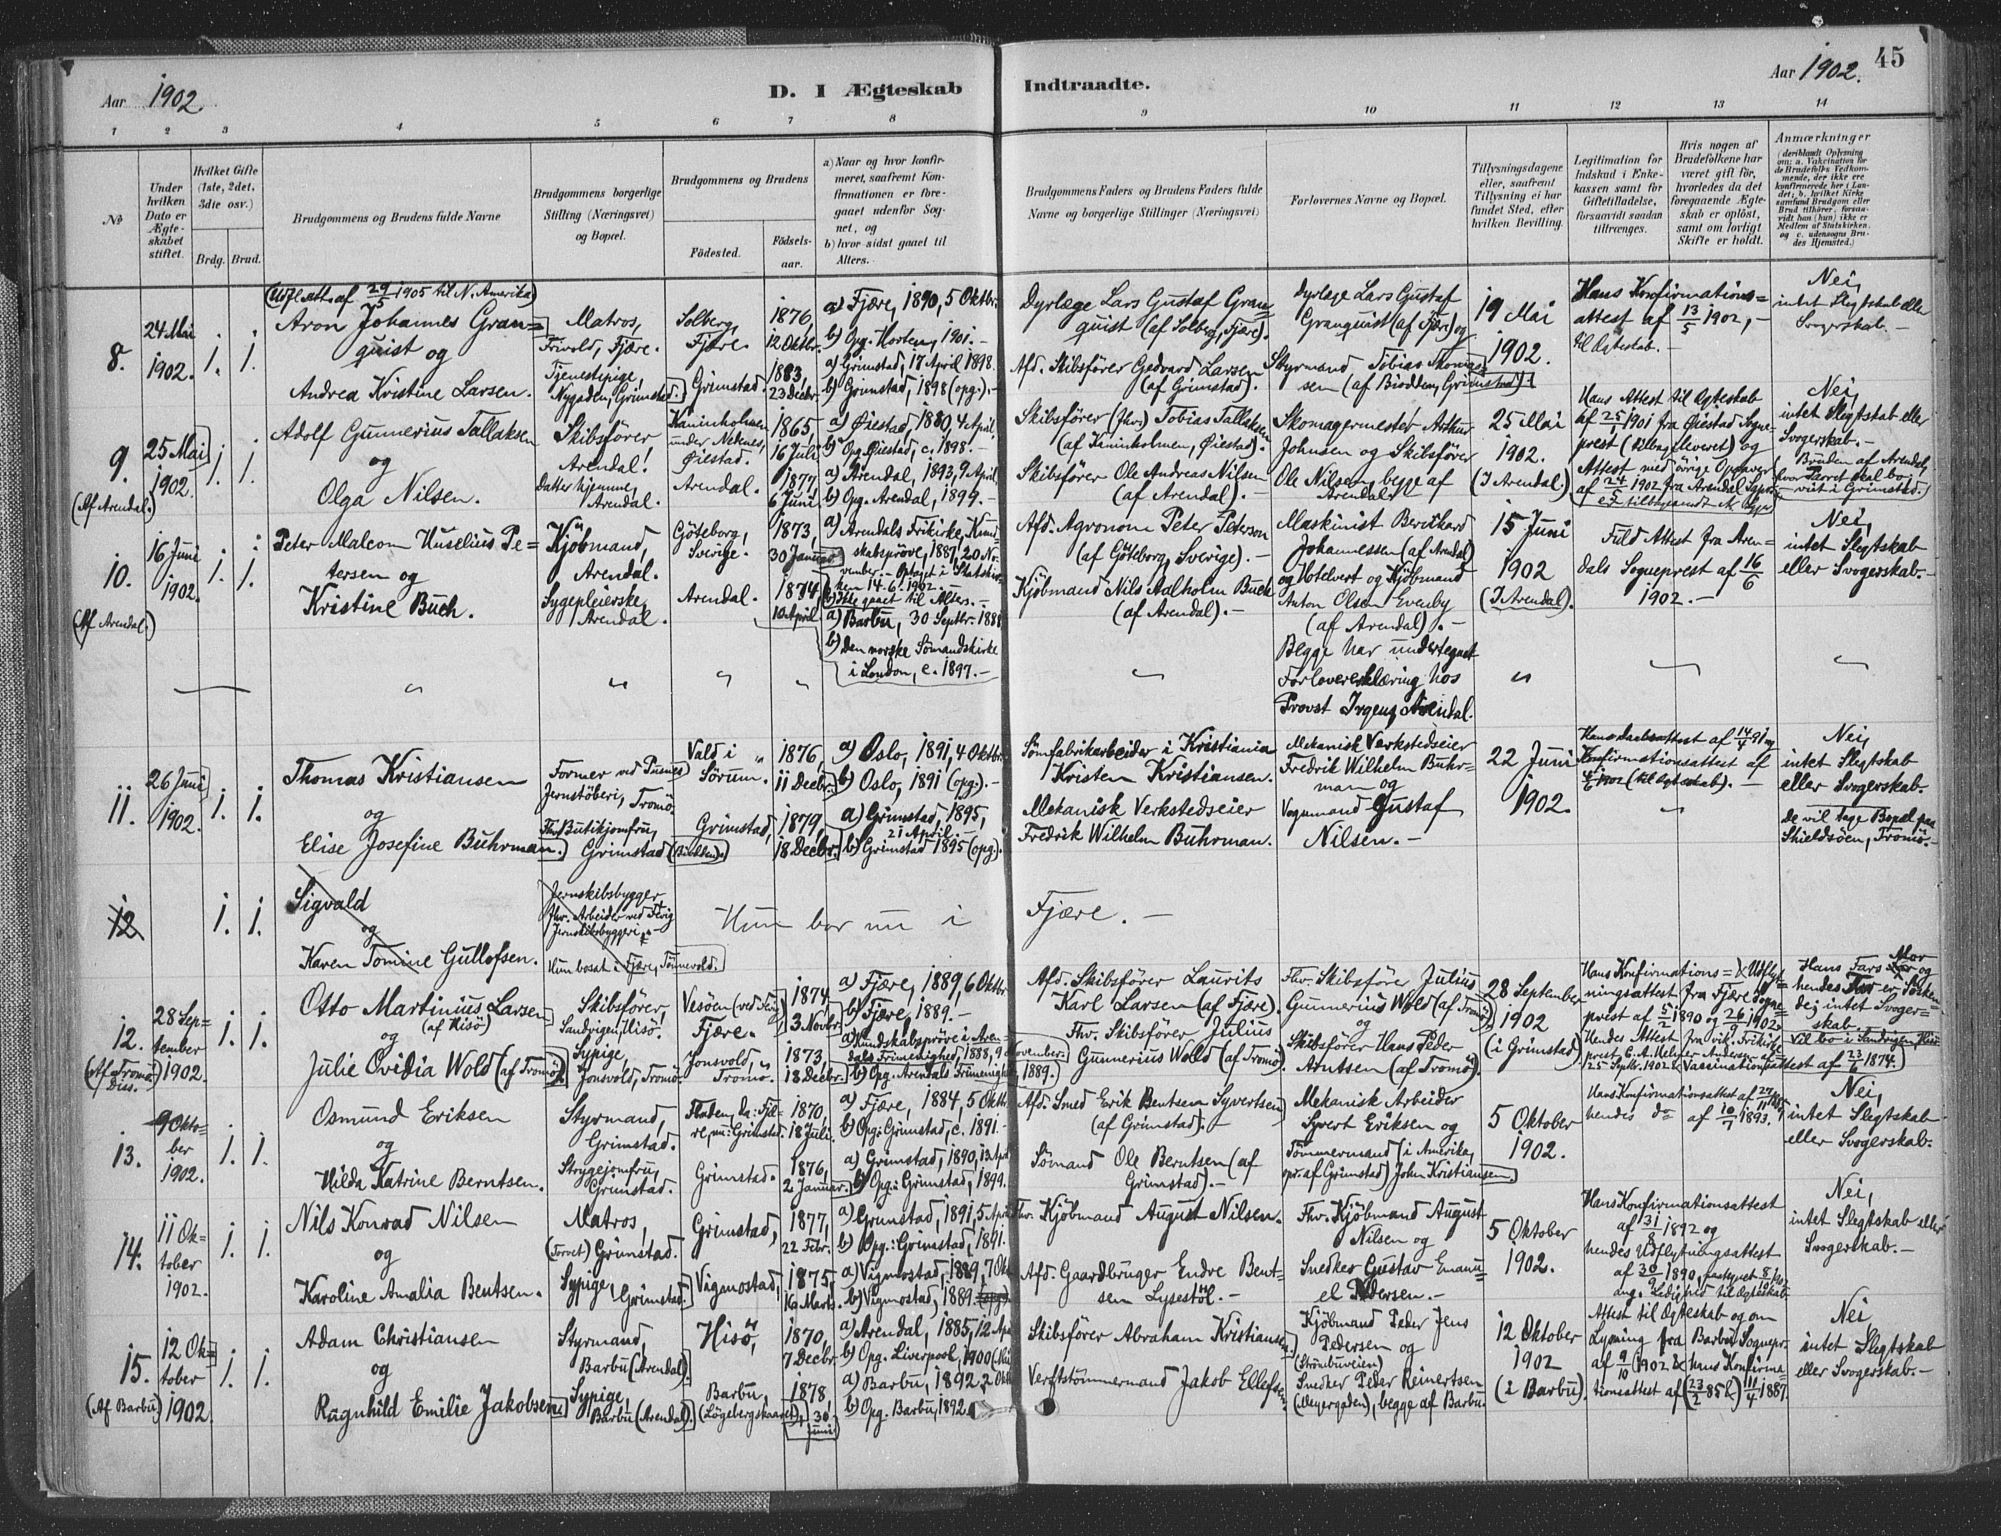 Aar 1902.
D. I Ægteskab
Indtraadte.
Aar 1902.
45
1 2 3 4 5 6 7 8 9 10 11 12 13 14
No
Under hvilken Dato er Ægteskabet stiftet.
Hvilket Gifte (1ste, 2det, 3die osv.)
Brdg. Brud.
Brudgommens og Brudens fulde Navne
Brudgommens borgerlige Stilling (Næringsvei) og Bopæl.
Brudgommens og Brudens
Födested.
Födsels-aar.
a) Naar og hvor konfirmeret, saafremt Konfirmationen er foregaaet udenfor Sognet, og
b) hvor sidst gaaet til Alters.
Brudgommens Faders og Brudens Faders fulde Navne og borgerlige Stillinger (Næringsvei)
Forlovernes Navne og Bopæl.
Tillysningsdagene eller, saafremt Tillysning ei har fundet Sted, efter hvilken Bevilling.
Legitimation for Indskud i Enkekassen samt for Giftetilladelse, forsaavidt saadan tiltrænges.
Hvis nogen af Brudefolkene har været gift før, hvorledes da det foregaaende Ægteskab er oplöst, samt om lovligt Skifte er holdt.
Anmærkninger
(deriblandt Oplysning om: a. Vakcination for de Brudefolks Vedkommende, der ikke ere konfirmerede her i Landet, b. hvilket Kirkesamfund Brudgom eller Brud tilhörer, forsaavidt han (hun) ikke er Medlem af Statskirken, og c. udensogns Brudes Hjemsted.)
8.
24 Mai 1902.
1. 1.
(Udfl.att. af 29/5 1905 til N. Amerika)
Aron Johannes Granquist og
Andrea Kristine Larsen.
Matros, Frivold, Fjære.
Tjenestepige, Nygaden, Grimstad.
Solberg, Fjære.
Grimstad.
1876, 12 Oktbr.
1883, 23 Decbr.
a) Fjære, 1890, 5 Oktbr.
b) Opg. Horten, 1901. –
a) Grimstad, 17 April 1898.
b) Grimstad, 1898 (opg.). –
Dyrlæge Lars Gustaf Granquist (af Solberg, Fjære).
Afd. Skibsfører Gedvard Larsen (af Grimstad).
Dyrlæge Lars Gustaf Granquist (af Fjære) og
Styrmand Tobias Thomassen (af Biodden, Grimstad).
19 Mai 1902.
Hans Konfirmationsattest af 13/5 1902, – til Ægteskab. –
Nei, intet Slegtskab eller Svogerskab. –
9.
(Af Arendal.)
25 Mai 1902.
1. 1.
Adolf Gunnerius Tallaksen
og
Olga Nilsen.
Skibsfører Arendal!
Datter hjemme, Arendal.
Kaninholmen under Nedenes, Øiestad.
Arendal.
1865, 16 Juli
1877, 6 Juni.
a) Øiestad, 1880, 4 April.
b) Opg. Øiestad, c. 1898. –
a) Arendal, 1893, 9 April.
b) Opg. Arendal, 1899. –
Skibsfører (fhv.) Tobias Tallaksen (af Kaninholmen, Øiestad).
Skibsfører Ole Andreas Nilsen (af Arendal). –
Skomagermester Arthur Johnsen og Skibsfører Ole Nilsen, begge af Arendal.
25 Mai 1902.
(I Arendal).
Hans Attest til Ægteskab af 25/1 1901 fra Øiestad Sogneprest (tilbageleveret) og Attest med øvrige Opgaver af 24/5 1902 fra Arendal
Nei, intet Slegtskab eller Svogerskab. –
Bruden af Arendal, hvor Parret skal bo – vist i Grimstad.
10.
(Af Arendal.)
16 Juni 1902.
1. 1.
Peter Malcom Huselius Petersen og
Kristine Buch.
Kjöbmand, Arendal.
Sygepleierske, Arendal.
Göteborg, Sverige.
Arendal.
1873, 30 Januar
1874, 10 April
a) Arendals Frikirke, Kundskabsprøve, 1887, 20 November. – Optaget i Statskirken 14.6.1902.
b) Ikke gaaet til Alters. –
a) Barbu, 30 Septbr. 1888
b) Den norske Sömandskirke i London, c. 1897. –
Afd. Agronom Peter Peterson (af Göteborg, Sverige). –
Kjöbmand Nils Aalholm Buch (af Arendal). –
Maskinist Bernhard Johannessen (af Arendal) og Hotelvert og Kjöbmand Anton Olsen Evenby (af Arendal). –
Begge har undertegnet Forlovererklæring hos Provst Irgens, Arendal.
15 Juni 1902
(I Arendal).
Fuld Attest fra Arendals Sogneprest af 16/6 1902. –
Nei, intet Slegtskab eller Svogerskab. –
11.
26 Juni 1902.
1. 1.
Thomas Kristiansen
og
Elise Josefine Buhrman.
Former ved Pusnes Jernstöberi, Tromö.
Fhv. Butikjomfru, Grimstad (Biodden).
Vald i Sörum.
Grimstad,
1876, 11 Decbr.
1879, 18 Decbr.
a) Oslo, 1891, 4 Oktbr.
b) Oslo, 1891 (opg.). –
a) Grimstad, 1895, 21 April. –
b) Grimstad 1895 (opg.). –
Sömfabrikarbeider i Kristiania Kristen Kristiansen.
Mekanisk Verkstedseier Fredrik Wilhelm Buhrman.
Mekanisk Verkstedseier Fredrik Wilhelm Buhrman og
Vognmand Gustaf Nilsen. –
22 Juni 1902.
Hans Daabsattest af 14/4 91 og Konfirmationsattest af 4/6 1902 (til Ægteskab). –
Nei, intet Slegtskab eller Svogerskab.
De vil tage Bopæl paa Skieldsöen, Tromö. –
12
1. 1.
Sigvald
og
Karen Tomine Gullofsen.
Jernskibsbygger, fhv. Arbeider ved Fevig Jernskibsbyggeri. –
Hun bosat i Fjære, Tönnevold.
Hun bor nu i Fjære. –
12.
(Af Tromö Diss.
28 September 1902.
1. 1.
Otto Martinius Larsen (af Hisö)
og
Julie Ovidia Wold (af Tromö).
Skibsfører, Sandvigen, Hisö.
Sypige, Jonsvold, Tromö.
Vesöen (ved Fevig) Fjære.
Jonsvold, Tromö.
1874, 3 Novbr.
1873, 18 Decbr.
a) Fjære, 1889, 6 Oktbr.
b) Fjære, 1889. –
a) Kundskabsprøve i Arendals Frimenighed, 1888, 9
November, 1889.
b) Opg. Arendals Frimenighed
Afd. Skibsfører Laurits Karl Larsen (af Fjære).
Fhv. Skibsfører Julius Gunnerius Wold (af Tromö).
Fhv. Skibsfører Julius Gunnerius Wold (af Tromö)
og
Skibsfører Hans Peder Arntsen (af Tromö).
28 September 1902
(i Grimstad).
Hans Konfirmations= & Udflytningsattest fra Fjære Sogneprest af 5/2 1890 og 26/9 1902.
Hendes Attest fra Arendals Frikirkeprest af 25 Septbr. 1902 & Vaccinationsattest af 23/6 1874.
Hans Fars Mor og hendes Far er Söskende; intet Svogerskab.
Vil bo i Sandvigen, Hisö
13.
9 Oktober 1902.
1. 1.
Osmund Eriksen
og
Hilda Katrine Berntsen.
Styrmand, Grimstad.
Strygejomfru, Grimstad.
Fjære, nu: Grimstad.
Grimstad.
1870, 18 Juli.
1876, 2 Januar.
a) Fjære, 1884, 5 Oktbr.
b) Opg: Grimstad, c. 1891. –
a) Grimstad, 1890, 13 April
b) Opg: Grimstad, 1899.
Afd. Smed Erik Bentsen Syvertsen (af Grimstad). –
Sömand Ole Berntsen (af Grimstad). –
Mekanisk Arbeider Syvert Eriksen og
Tömmermand (i Amerika, opr. af Grimstad) John Kristiansen
5 Oktober 1902.
Hans Konfirmationsattest af 27/11 1885,
hendes do af 10/7 1893.
Nei, intet Slegtskab eller Svogerskab.
14.
11 Oktober 1902.
1. 1.
Nils Konrad Nilsen
og
Karoline Amalia Bentsen.
Matros, (Torvet) Grimstad.
Sypige, Grimstad.
Grimstad,
Vigmostad,
1877, 22 Febr.
1875, 16 Marts.
a) Grimstad, 1891, 5 April
b) Opg.: Grimstad, 1891.
a) Vigmostad, 1889, 7 Oktbr.
b) Vigmostad, 1889.
Fhv. Kjöbmand August Nilsen.
Afd. Gaardbruger Endre Bentsen Lysestöl. –
Fhv. Kjöbmand August Nilsen og
Snedker Gustav Emanuel Pedersen. –
5 Oktober 1902.
Hans Konfirmationsattest af 31/8 1892 og
hendes Udflytningsattest af 30/9 1890, paategnet 8/10 ang. Ledighed til Ægteskab
Nei, intet Slegtskab eller Svogerskab. –
15.
(Af Barbu)
12 Oktober 1902.
1. 1.
Adam Christiansen
og
Ragnhild Emilie Jakobsen
Styrmand, Barbu (Arendal).
Sypige, Barbu (Arendal).
Hisö,
Barbu,
1870, 7 Decbr.
1878, 30 Juni.
a) Arendal, 1885, 12 Apr.
b) Opg. Liverpool, 1900
a) Barbu, 1892, 2 Oktbr
b) Opg. Barbu, 1892.
Skibsfører Abraham Kristiansen.
Verftstömmermand Jakob Ellefsen.
Kjöbmand Peder Jens Pedersen og (Strömbuveien)
Snedker Peder Reinertsen (Meyergaden), begge af Barbu.
12 Oktober 1902
(i Barbu).
Attest til Ægteskab og om Lysning fra Barbu Sognepr. af 9/10 1902 & hans Konfirmationsattest af (23/2 85 &) 11/4 1887.
Nei, intet Slegtskab eller Svogerskab. –